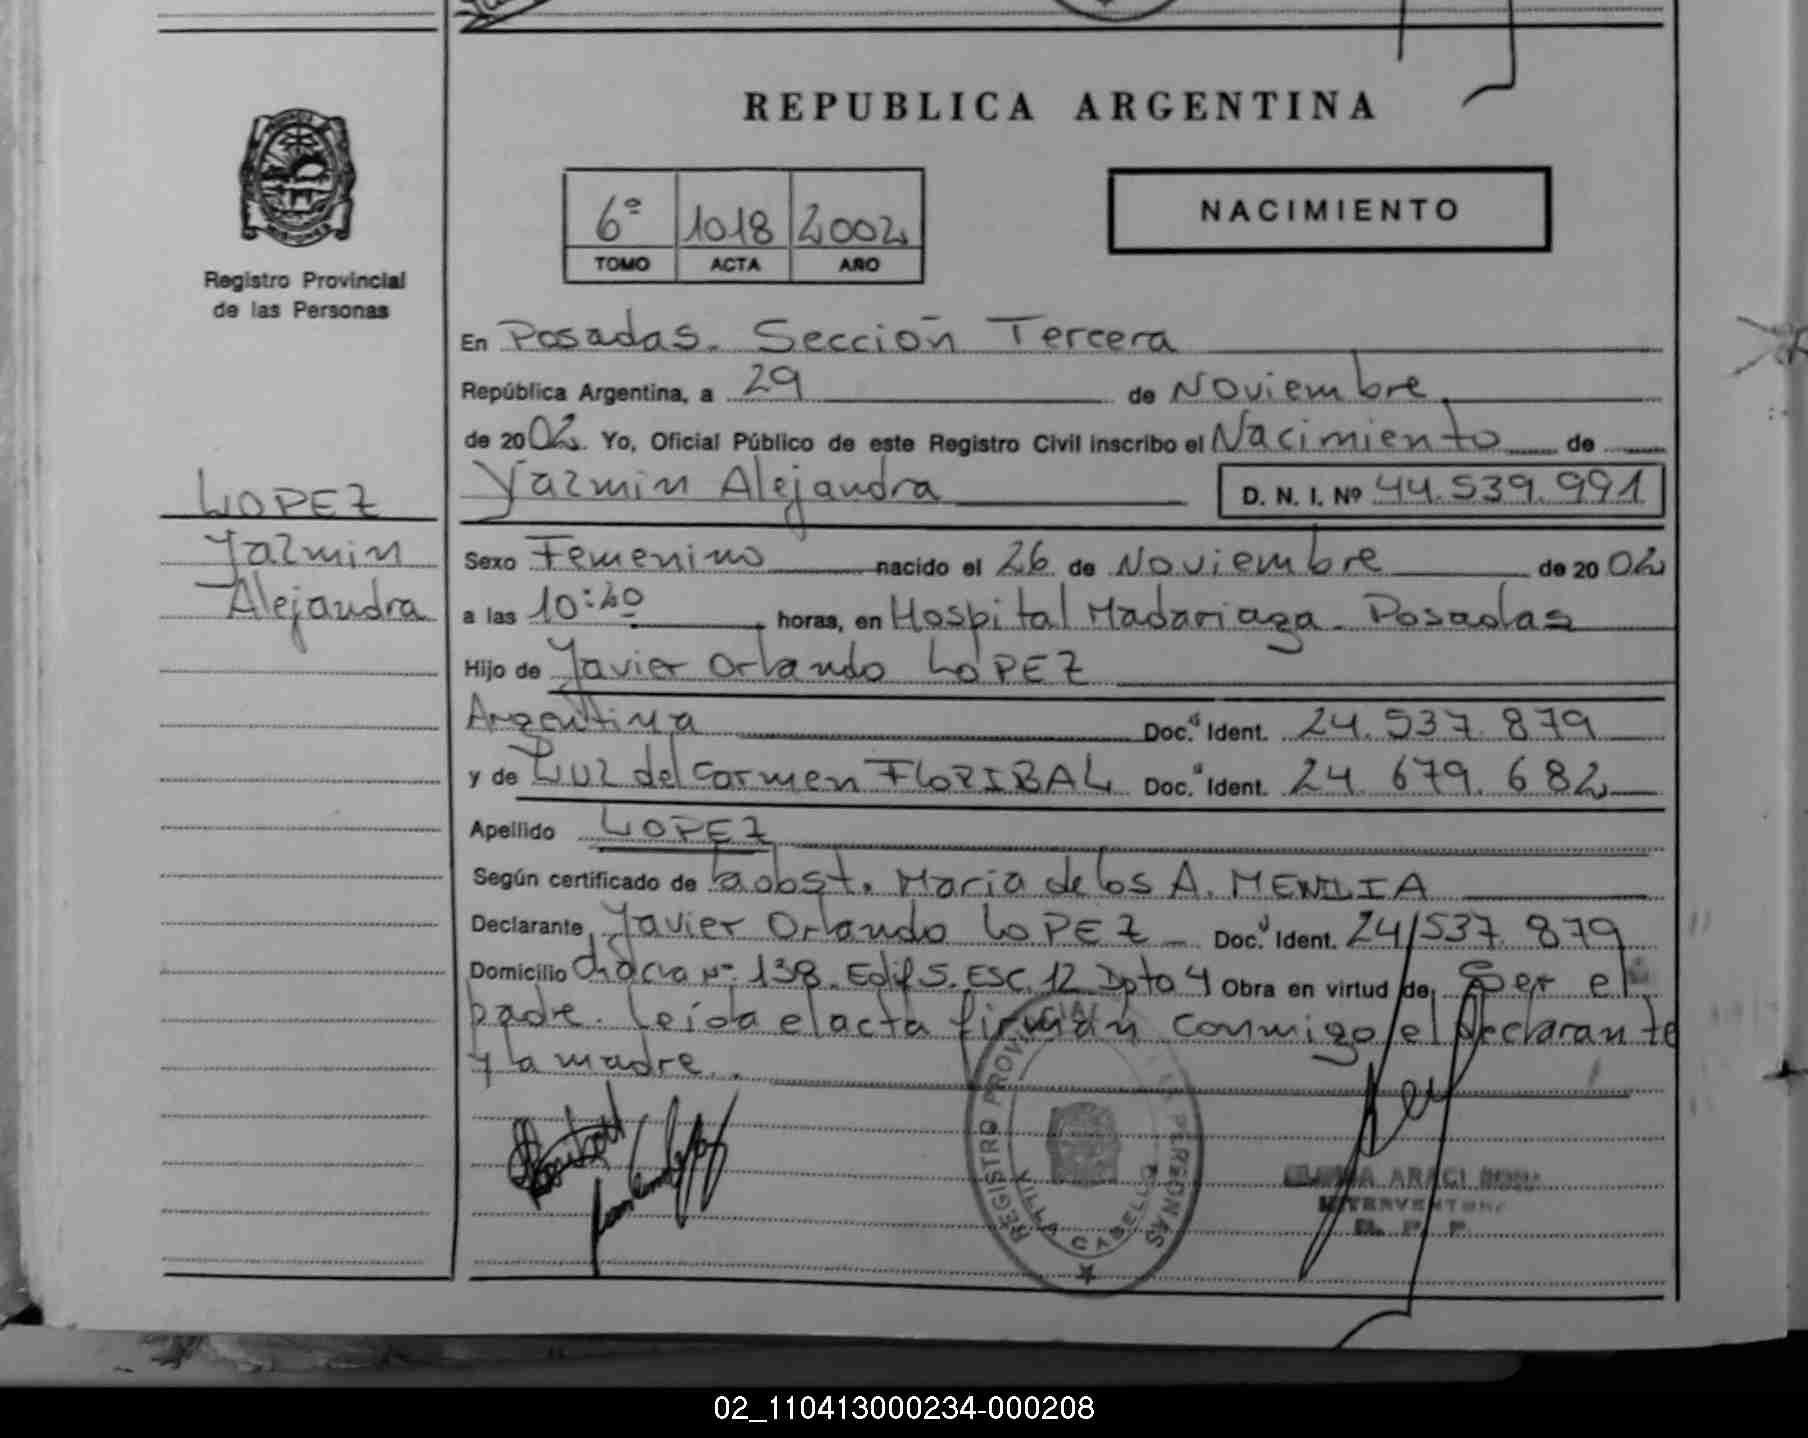 REPUBLICA ARGENTINA
6º 1018 2002
TOMO ACTA AÑO
NACIMIENTO
Registro Provincial
de las Personas
LOPEZ
Yazmin
Alejandra
En Posadas. Sección Tercera
República Argentina, a 29 de Noviembre
de 2002. Yo, Oficial Público de este Registro Civil inscribo el Nacimiento de
Yazmin Alejandra D. N. I. Nº 44.539.991
Sexo Femenino nacido el 26 de Noviembre de 2002
a las horas, en Hospital Madariaga. Posadas
Hijo de Javier Orlando LOPEZ
Argentina Doc. Ident. 24.537.879
y de Luz del Carmen FLORIBAL Doc. Ident. 24.679.682
Apellido LOPEZ
Según certificado de la obst. Maria de los A.
Declarante Javier Orlando LOPEZ Doc. Ident. 24.537.879
Domicilio Chacra Nº 138. Edif 5. Esc. 12 Dpto 4 Obra en virtud de Ser el
padre. Leída el acta firman conmigo el declarante
y la madre..
REGISTRO PROVINCIAL DE LAS PERSONAS
VILLA CABELLO
ARACI
INTERVENTORA
R. P. P.
02_110413000234-000208